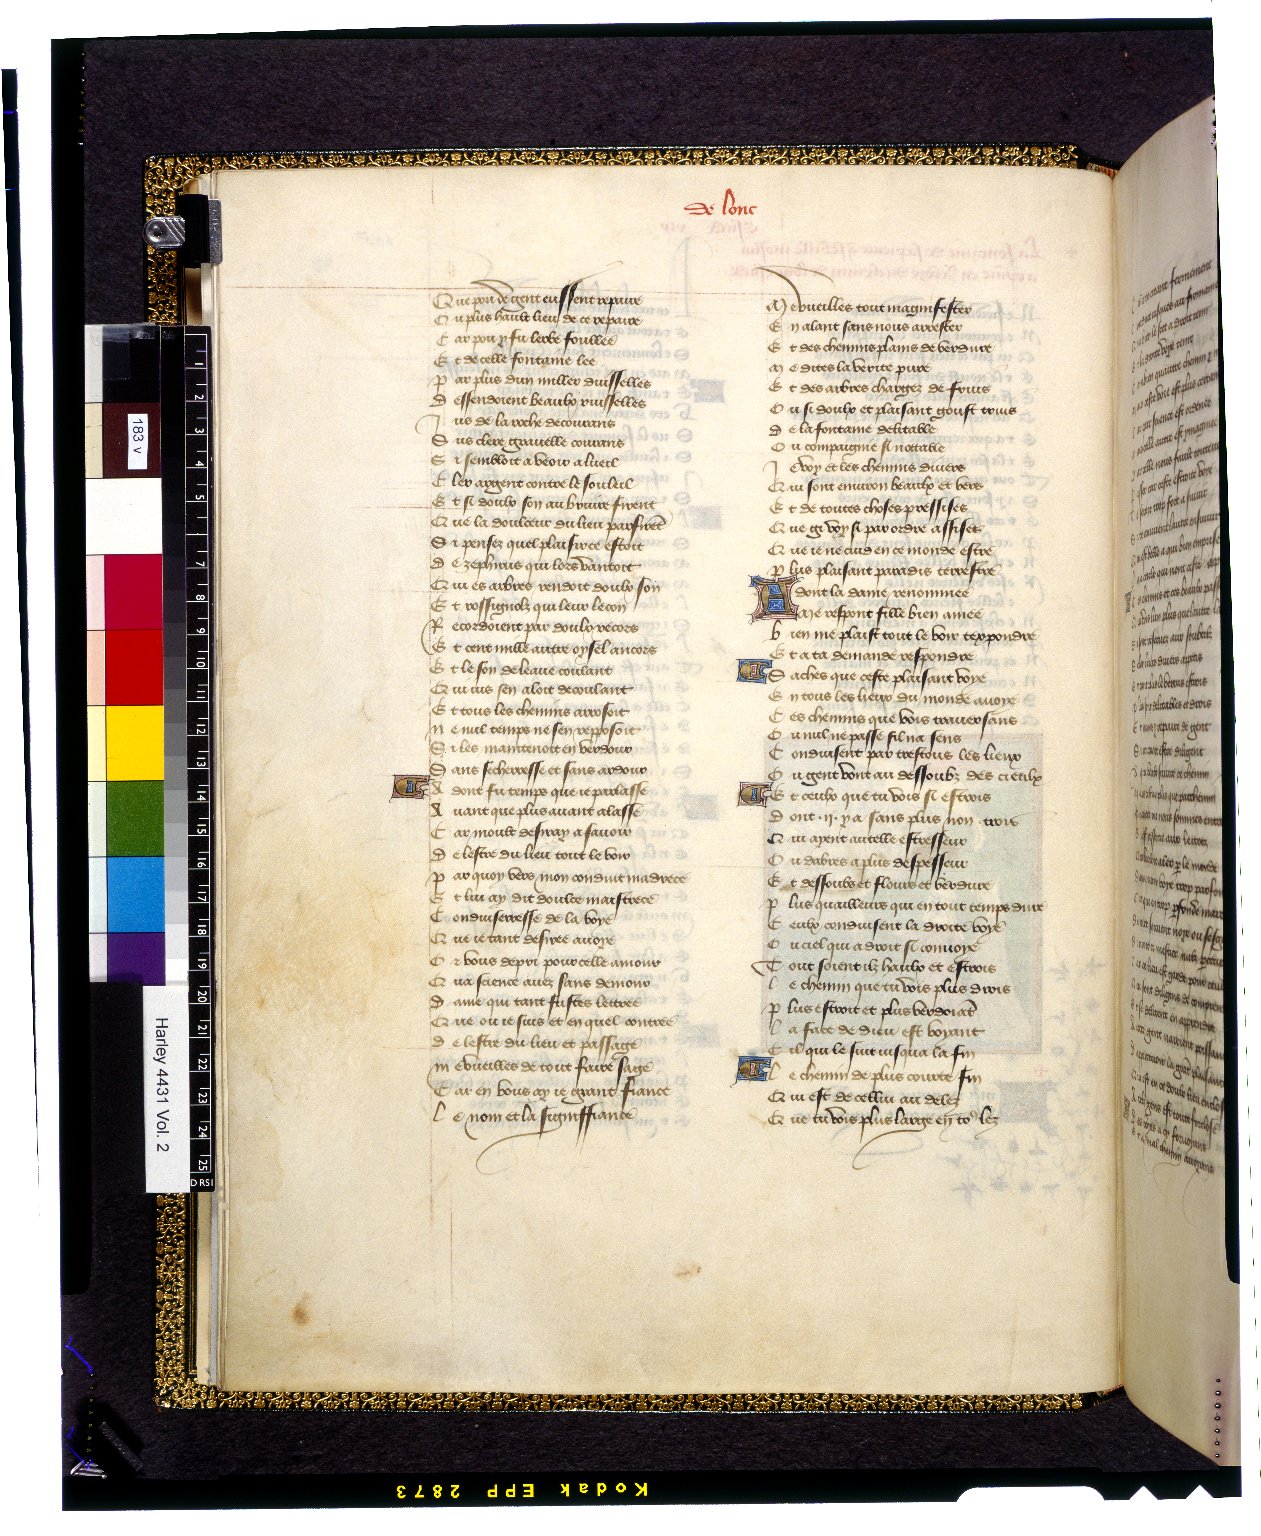 de lonc
Que pou de gent eussent repaire
Ou plus hault lieu de ce repaire
Car pou y fu lerbe foullee
Et de celle fontaine lee
Par plus dun millier duisselles
Dessendoient beaulx ruisselles
Jus de la roche decourans
Sus clere gravelle courans
Si sembloit a veoir a lueil
Cler argent contre le souleil
Et si doulx son au bruire firent
Que la doulceur du lieu parfirent
Si pensez quel plaisir ce estoit
De zephirus qui lors vantoit
Qui es arbres rendoit doulx son
Et rossignolz qui leur lecon
Recordoient par doulx recors
Et cent mille autre oysel ancors
Et le son de leaue coulant
Qui jus sen aloit decoulant
Et tous les chemins arrosoit
Ne nul temps ne sen repposoit
Si les maintenoit en verdour
Sans secherresse et sans ardour
Adont fu temps que je parlasse
Avant que plus avant alasse
Car moult desiray a savoir
De lestre du lieu tout le voir
Par quoy vers mon conduit madrece
Et lui ay dit doulce maistrece
Conduiserresse de la voye
Que je tant desiree avoye
Or vous depri pour celle amour
Qua science avez sans demour
Dame qui tant fustes lettree
Que ou je suis et en quel contree
De lestre du lieu et passage
Merveilles de tout faire sage
Car en vous ay je grant fiance
Le nom et la signiffiance
Merveilles tout magnifester
En alant sans nous arrester
Et des chemins plains de verdure
Me dites la verite pure
Et des arbres chargez de fruis
Ou si doulx et plaisant goust truis
De la fontaine delitable
Ou compaignie si nottable
Je voy et les chemins divers
Qui sont environ beaulx et vers
Et de toutes choses pressises
Que gi voy si par ordre assises
Que je ne cuid en ce monde estre
Plus plaisant paradis terrestre
Adont la dame renommee
Me respont fille bien amee
Bien me plaist tout le voir texpondre
Et a ta demande respondre
Saches que ceste plaisant voye
En tous les lieux du monde avoye
Ces chemins que vois traversans
Ou nul ne passe sil na sens
Conduisent par trestous les lieux
Ou gent vont au dessoubz des cieulx
Et ceulx que tu vois si estrois
Dont .ij. y a sans plus non trois
Qui ayent autelle estresseur
Ou darbres a plus despesseur
Et dessoubs et flours et verdure
Plus quailleurs qui en tout temps dure
Ceulx conduisent la droite voye
Ou ciel qui a droit si convoye
Tout soient ilz haulx et estrois
Le chemin que tu vois plus drois
Plus estroit et plus verdoiant
La face de dieu est voyant
Cil qui le suit jusqua la fin
Le chemin de plus courte fin
Qui est de cellui au delez
Que tu vois plus large en tos lez
183 v
Harley 4431 Vol. 2
1
2
3
4
5
6
7
8
9
10
11
12
13
14
15
16
17
18
19
20
21
22
23
24
25
Kodak EPP 2873